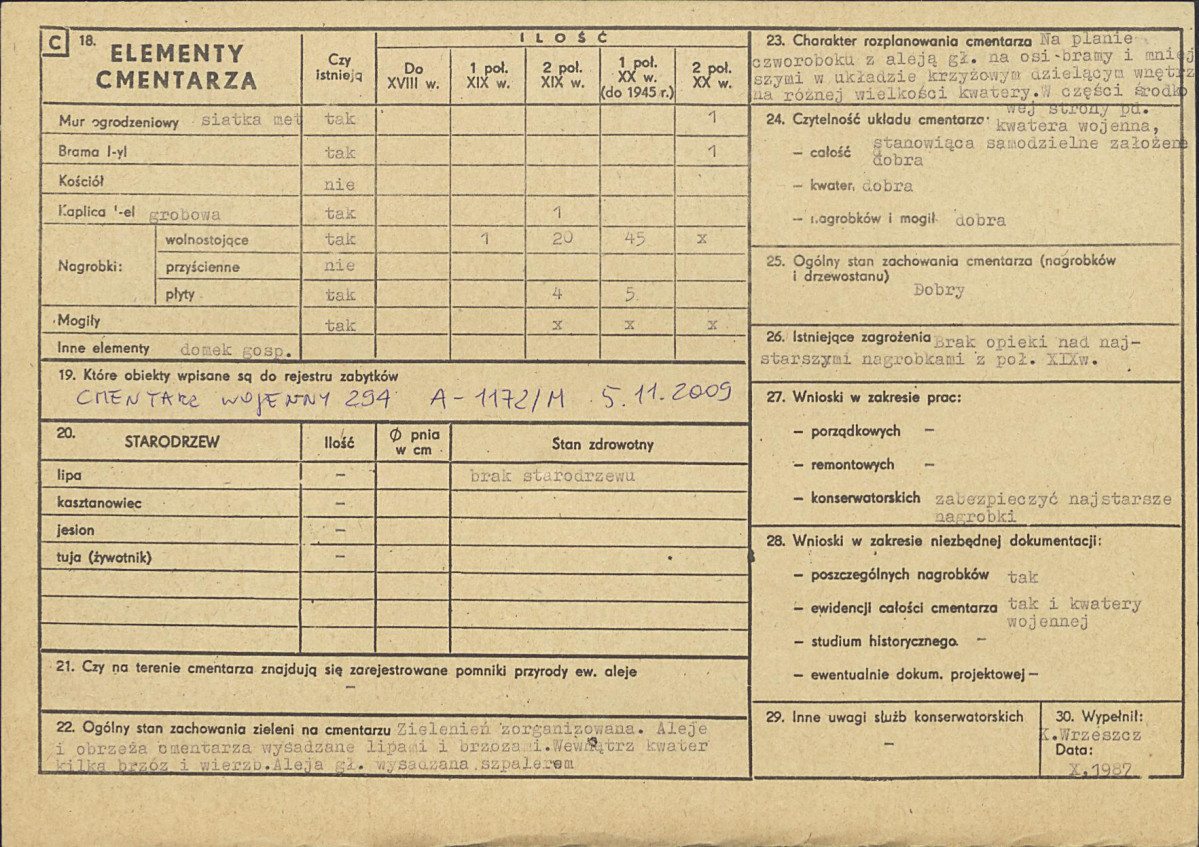 C 18. ELEMENTY CMENTARZA
Czy istnieją
ILOŚĆ
Do XVIII w.
1 poł. XIX w.
2 poł. XIX w.
1 poł. XX w. (do 1945 r.)
2 poł. XX w.
Mur ogrodzeniowy siatka met tak 1
Brama I-yl tak 1
Kościół nie
Kaplica -el grobowa tak 1
Nagrobki:
wolnostojące tak 1 20 45 x
przyścienne nie
płyty tak 4 5
Mogiły tak x x x
Inne elementy domek gosp.
19. Które obiekty wpisane są do rejestru zabytków
CMENTARZ WOJENNY 294 A-1172/M 5.11.2009
20. STARODRZEW Ilość Ø pnia w cm Stan zdrowotny
lipa – brak starodrzewu
kasztanowiec –
jesion –
tuja (żywotnik) –
21. Czy na terenie cmentarza znajdują się zarejestrowane pomniki przyrody ew. aleje
–
22. Ogólny stan zachowania zieleni na cmentarzu Zielenień zorganizowana. Aleje
i obrzeża cmentarza wysadzane lipami i brzozami.Wewnątrz kwater
kilka brzóz i wierzb.Aleja gł. wysadzana szpalerem
23. Charakter rozplanowania cmentarza Na planie
czworoboku z aleją gł. na osi bramy i mniej
szymi w układzie krzyżowym dzielącym wnętrz
na różnej wielkości kwatery.W części środko
wej strony pd.
24. Czytelność układu cmentarza kwatera wojenna,
stanowiąca samodzielne założenie
– całość dobra
– kwater, dobra
– nagrobków i mogił dobra
25. Ogólny stan zachowania cmentarza (nagrobków
i drzewostanu)
Dobry
26. Istniejące zagrożenia Brak opieki nad naj-
starszymi nagrobkami z poł. XIXw.
27. Wnioski w zakresie prac:
– porządkowych –
– remontowych –
– konserwatorskich zabezpieczyć najstarsze
nagrobki
28. Wnioski w zakresie niezbędnej dokumentacji:
– poszczególnych nagrobków tak
– ewidencji całości cmentarza tak i kwatery
wojennej
– studium historycznego –
– ewentualnie dokum. projektowej –
29. Inne uwagi służb konserwatorskich
–
30. Wypełnił:
K.Wrzeszcz
Data:
X.1987